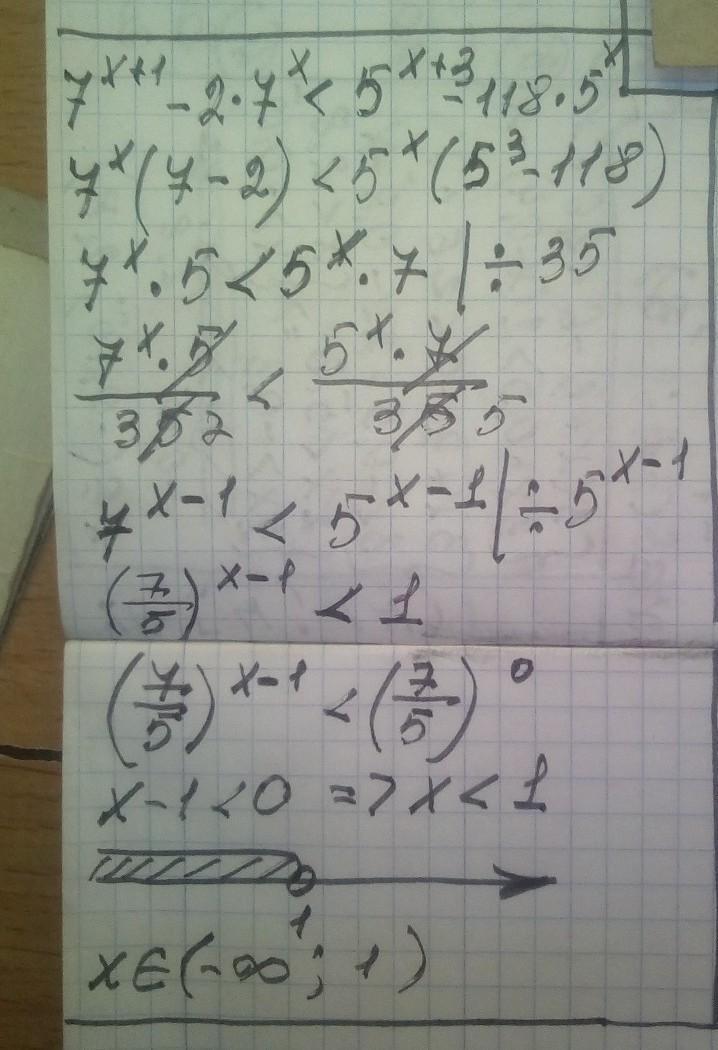 7^{x+1} - 2·7^x < 5^{x+3} - 118·5^x
7^x(7-2) < 5^x(5^3-118)
7^x·5 < 5^x·7 | ÷35
\frac{7^x·5}{35 7} < \frac{5^x·7}{35 5}
7^{x-1} < 5^{x-1} | ÷5^{x-1}
(\frac{7}{5})^{x-1} < 1
(\frac{7}{5})^{x-1} < (\frac{7}{5})^0
x-1<0 => x<1
1
x∈(-∞; 1)